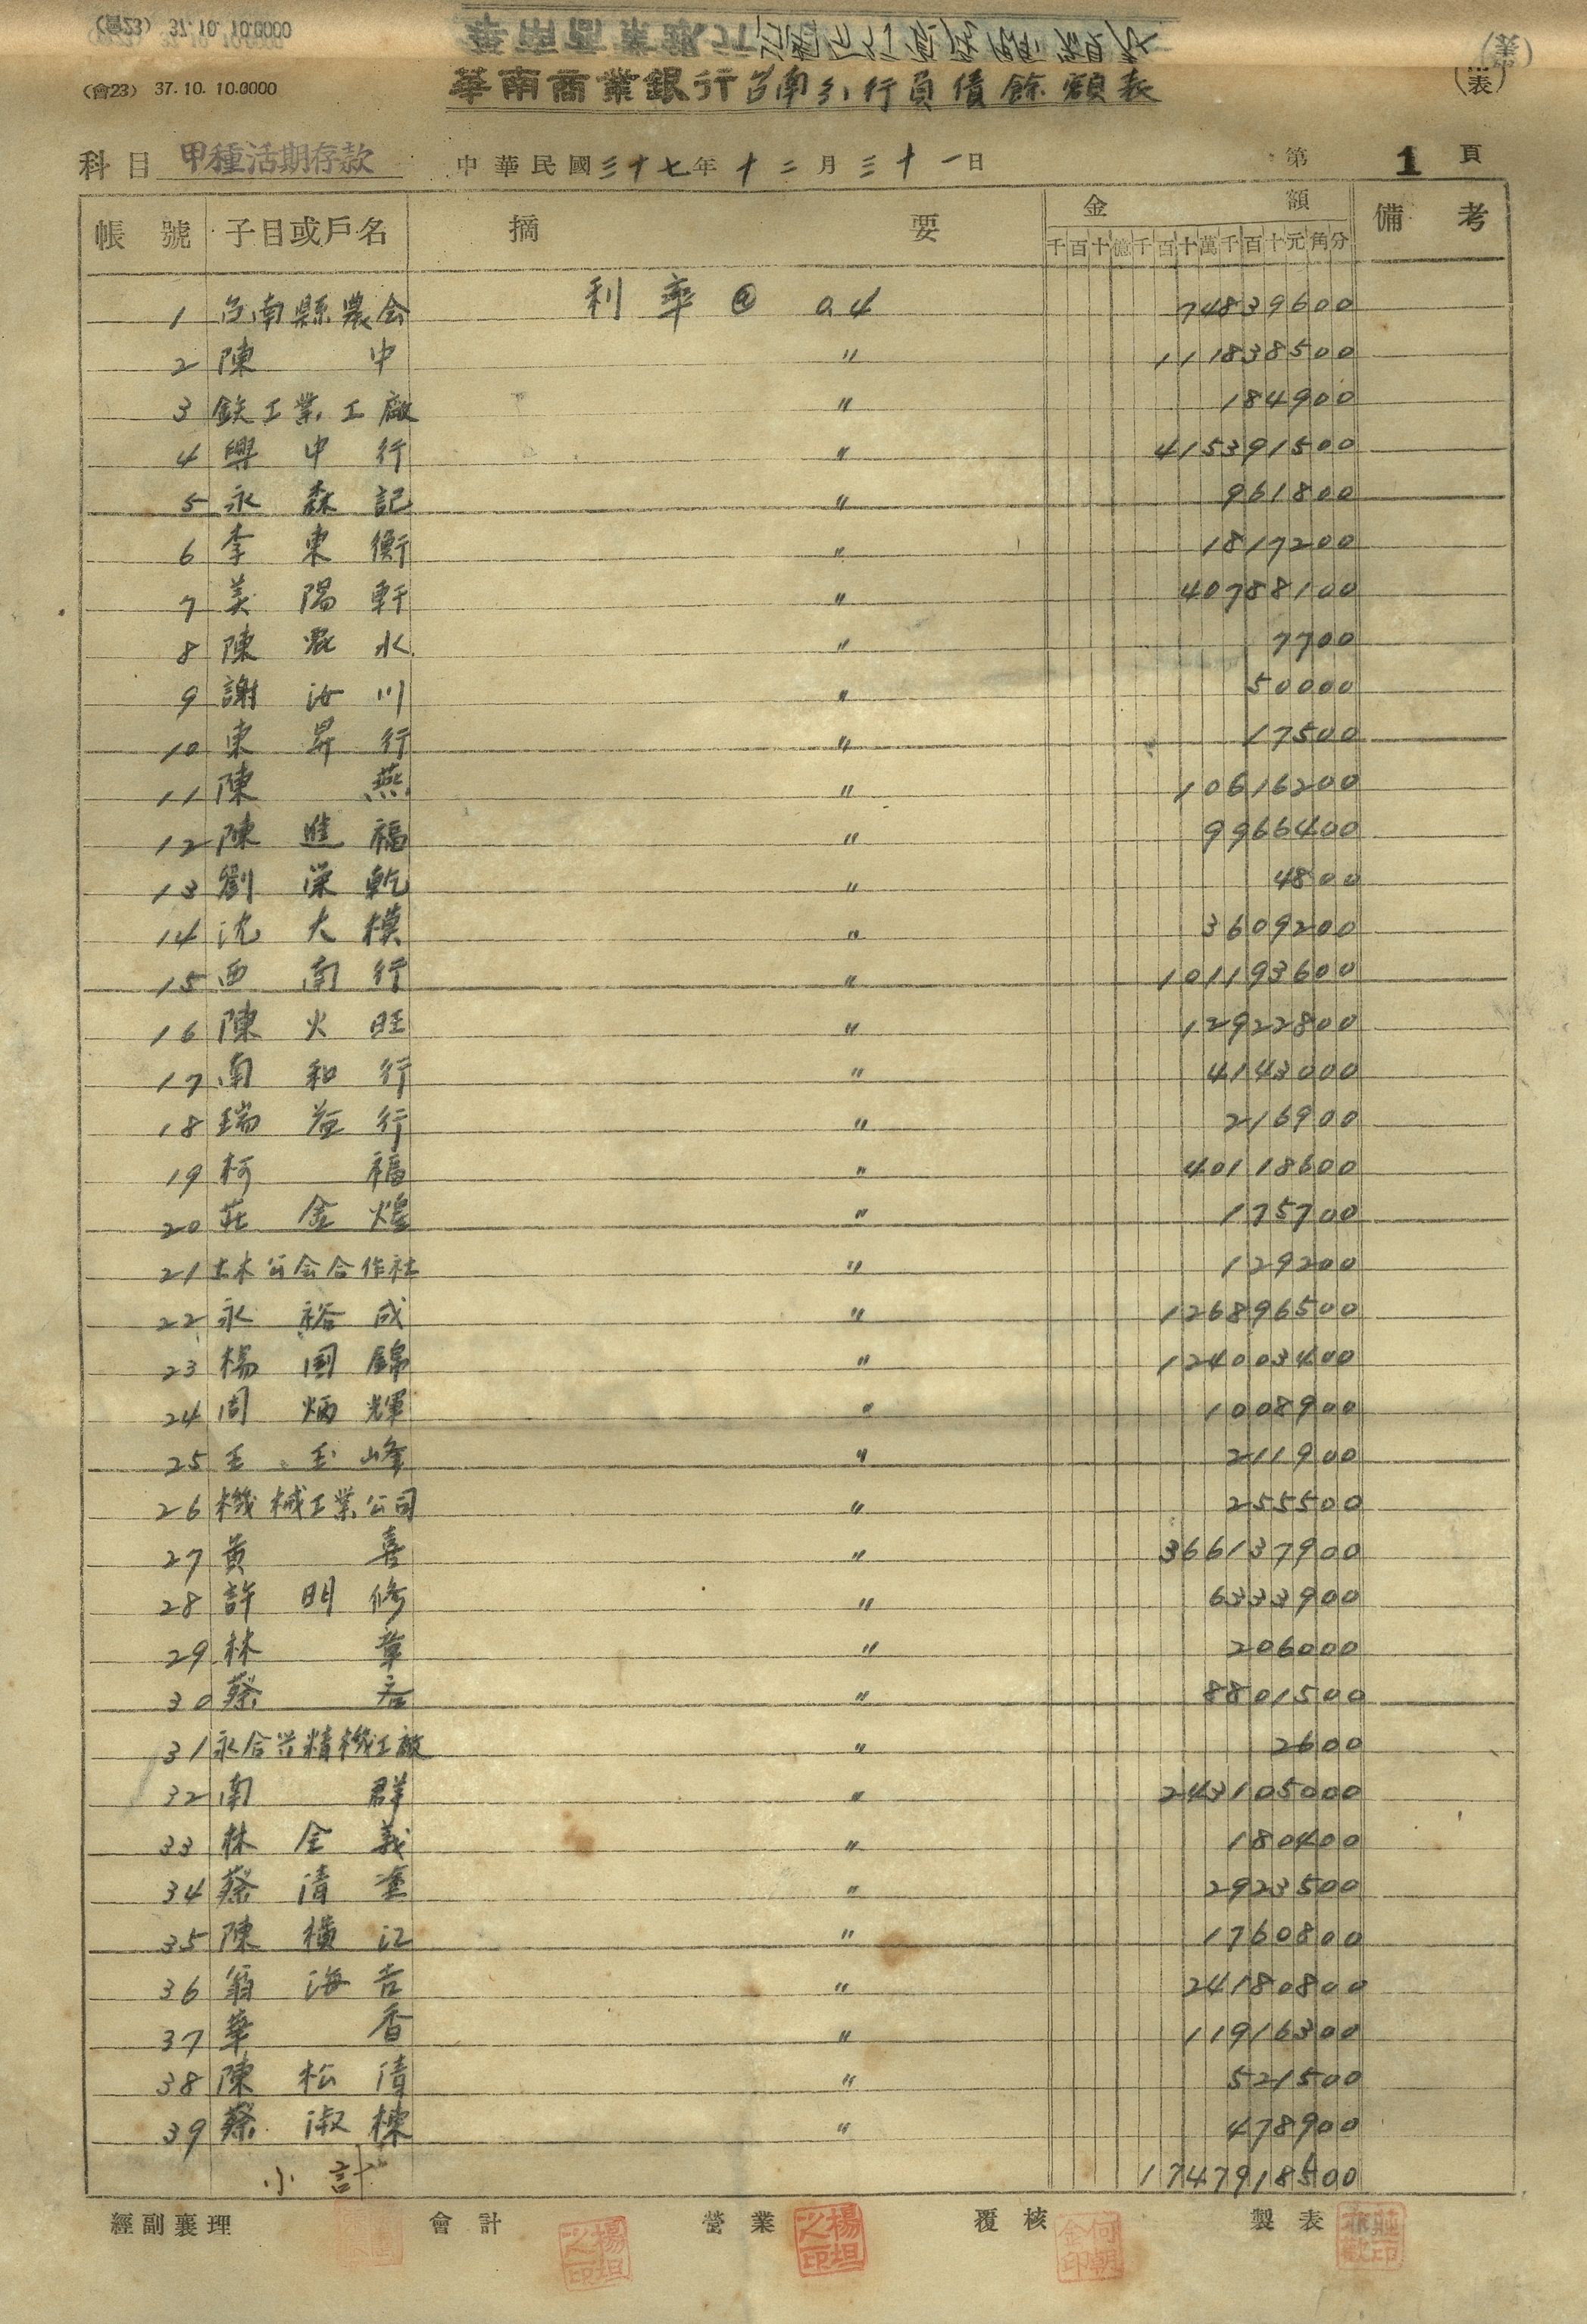 (會23) 37.10.10.0000
華南商業銀行台南分行負債餘額表
(表)
科目 甲種活期存款 中華民國三十七年十二月三十一日 第1頁
帳號 子目或戶名 摘要 金額 備考
千百十億千百十萬千百十元角分
1 台南縣農会 利率@ 0.4 74839600
2 陳中 〃 111838500
3 鉄工業工廠 〃 184900
4 興中行 〃 415391500
5 永森記 〃 961800
6 李東衡 〃 1817200
7 美陽軒 〃 40788100
8 陳水 〃 7700
9 謝汝川 〃 50000
10 東昇行 〃 17500
11 陳燕 〃 10616200
12 陳進福 〃 9966400
13 劉深乾 〃 4800
14 沈大模 〃 3609200
15 西南行 〃 101193600
16 陳火旺 〃 12922800
17 南和行 〃 4143000
18 瑞益行 〃 216900
19 柯福 〃 40118600
20 莊金煌 〃 175700
21 土木公会合作社 〃 129200
22 永裕成 〃 126896500
23 楊国錦 〃 124003400
24 周炳輝 〃 1008900
25 王玉峰 〃 211900
26 機械工業公司 〃 255500
27 黄喜 〃 366137900
28 許明修 〃 6333900
29 林章 〃 206000
30 蔡 〃 8801500
31 永合興精機工廠 〃 2600
32 南群 〃 243105000
33 林金義 〃 180400
34 蔡清塗 〃 2923500
35 陳横江 〃 1760800
36 翁海吉 〃 24180800
37 華香 〃 11916300
38 陳松清 〃 521500
39 蔡淑棟 〃 478900
小計 1747918500
經副襄理 會計 營業 覆核 製表
楊坦之印 楊坦之印 何朝金印